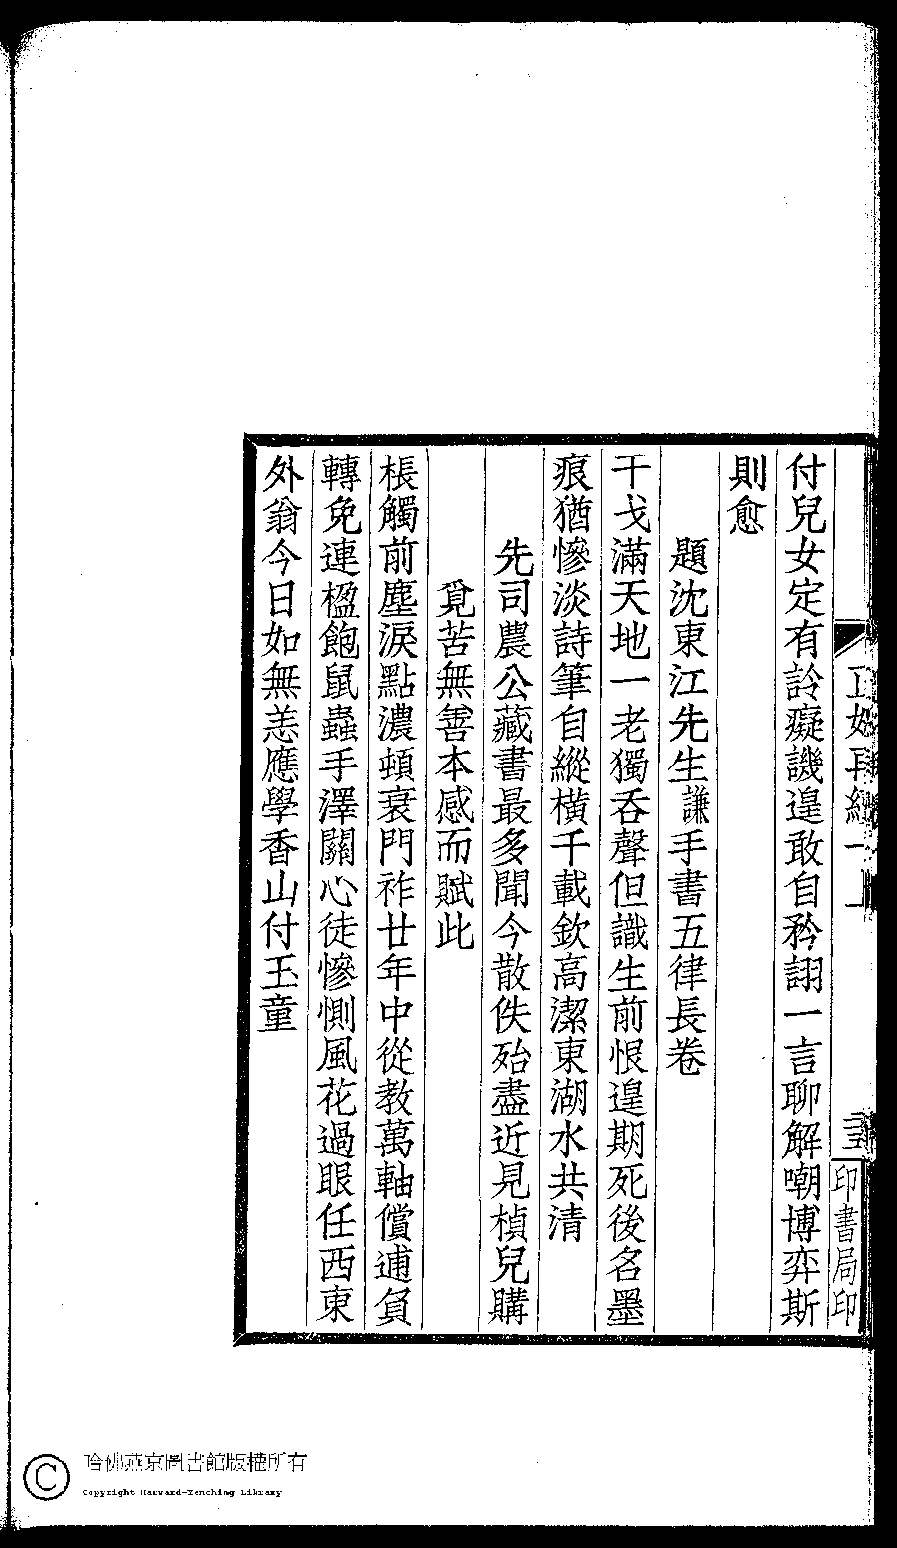 付兒女定有詅癡譏遑敢自矜詡一言聊解嘲博弈斯
則愈
題沈東江先生謙手書五律長卷
干戈滿天地一老獨吞聲但識生前恨遑期死後名墨
痕猶慘淡詩筆自縱橫千載欽高潔東湖水共清
先司農公藏書最多聞今散佚殆盡近見楨兒購
覓苦無善本感而賦此
棖觸前塵淚點濃頓衰門祚廿年中從教萬軸償逋負
轉免連楹飽鼠蟲手澤關心徒慘惻風花過眼任西東
外翁今日如無恙應學香山付玉童
印書局印
哈佛燕京圖書館版權所有
Copyright Harvard-Yenching Library